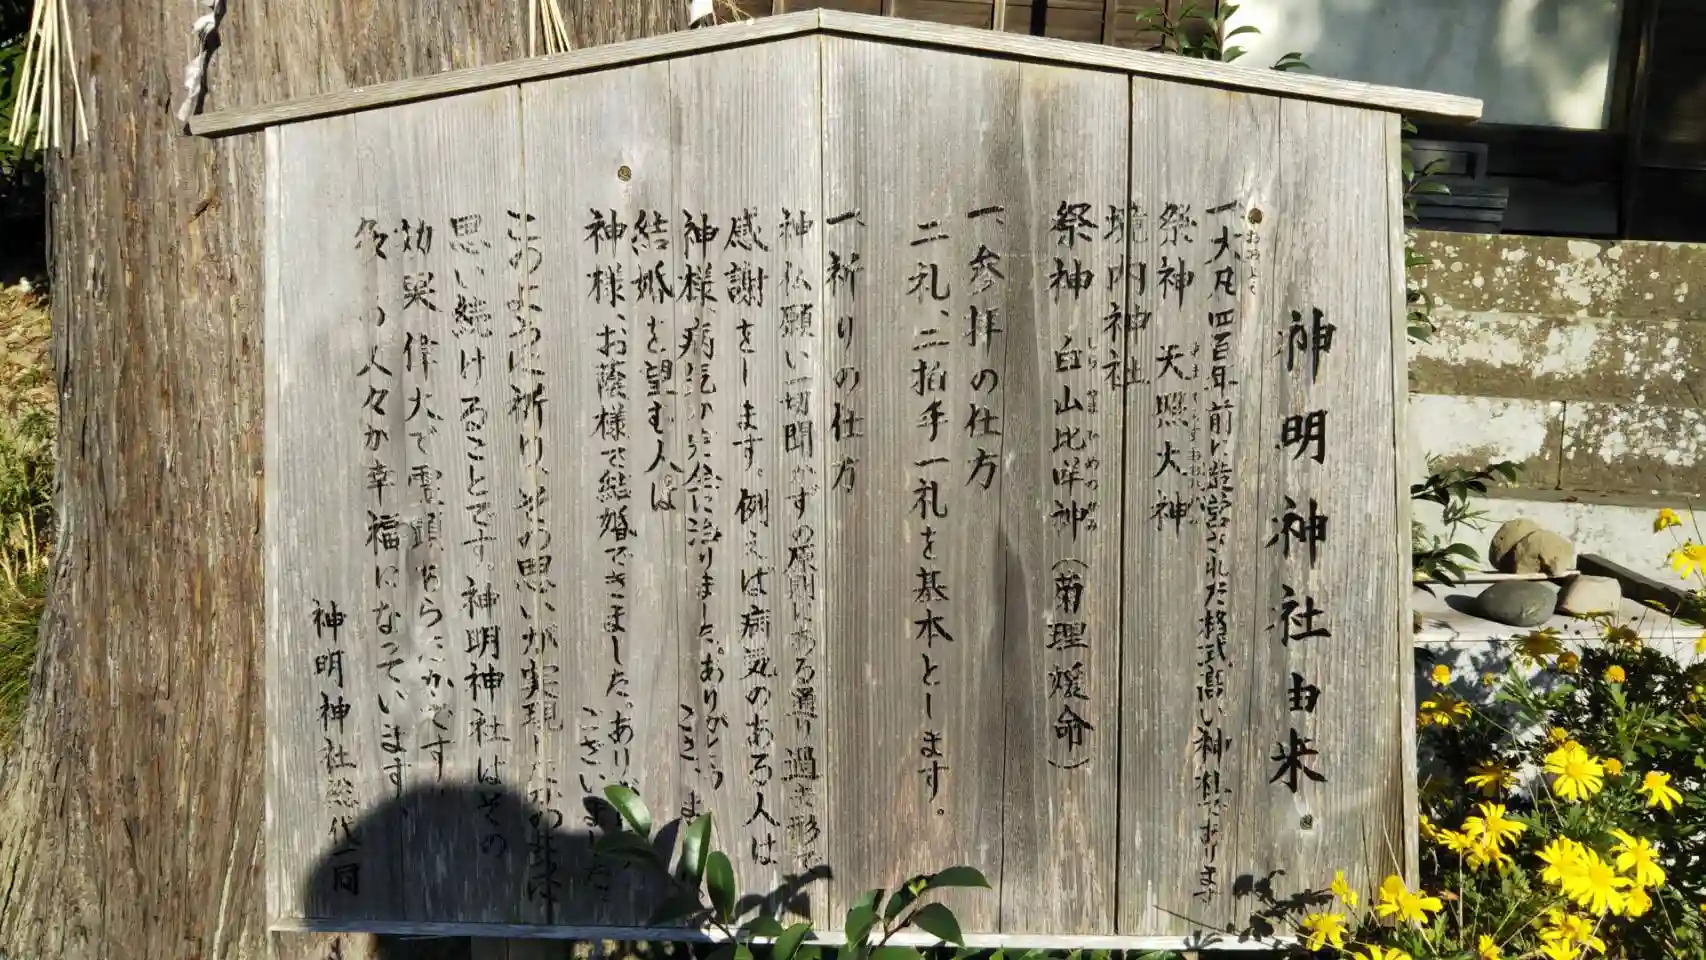 神明神社由来
一、大凡四百年前に造営された格式高い神社であります
おおよそ
祭神 天照大神
境内神社
祭神 白山比咩神（菊理媛命）
しらやまひめのかみ
一、参拝の仕方
二礼、二拍手一礼を基本とします。
一、祈りの仕方
神仏願い一切聞かずの原則にある通り過去形で
感謝をします。例えば病気のある人は
神様、病気が完全に治りました。ありがとう
結婚を望む人は
神様、お蔭様で結婚できました。
ございました
このように祈り、その思いが実現
思い続けることです。神明神社はその
効果偉大で霊顕あらたかです
多くの人々が幸福になっています。
神明神社総代一同